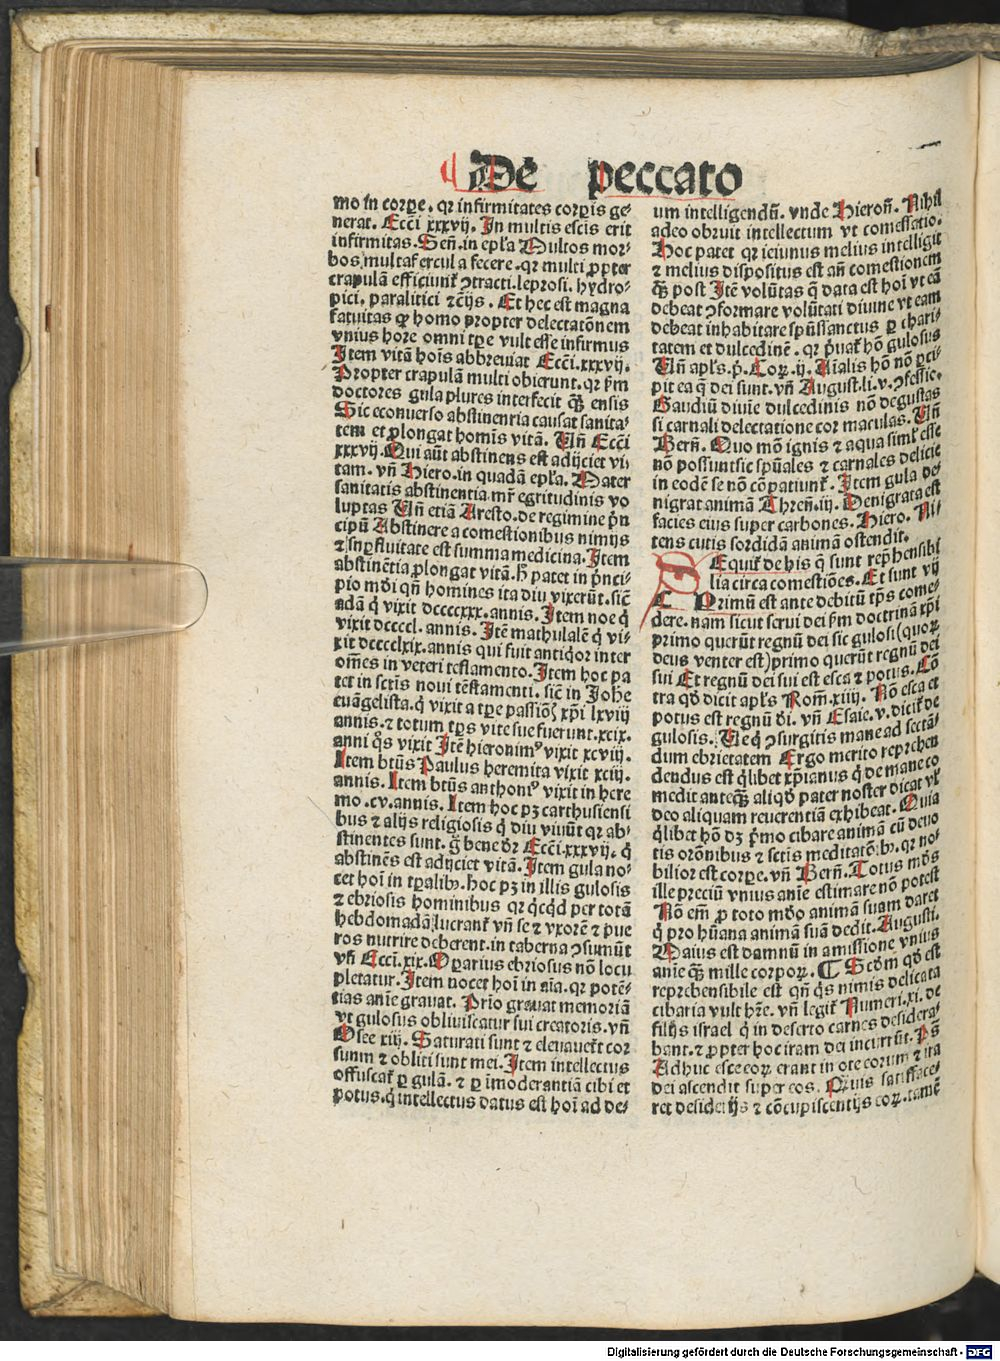 De peccato
mo in corpe. qr infirmitates corpis ge-
nerat. Ecci xxxvij. In multis escis erit
infirmitas. Sen̄. in epl'a Multos mor-
bos multa fercula fecere. qr multi ꝓpter
crapulā efficiunt̄ ꝯtracti. leprosi. hydro-
pici, paralitici ⁊ c̄ijs. Et hec est magna
fatuitas ꝙ homo propter delectatōnem
vnius hore omni tpe vult esse infirmus
Item vitā hoīs abbreuiat Ecc̄i. xxxvij.
Propter crapulā multi obierunt. qr ẜm
doctores gula plures interfecit ꝙ̄ ensis
Sic econuerso abstinenria causat sanita-
tem et ꝓlongat homis vitā. Vn̄ Ecc̄i
xxxvij. Qui aūt abstinens est adijciet vi-
tam. vn̄ Hiero. in quadā epl'a. Mater
sanitatis abstinentia. mr̄ egritudinis vo
luptas Vn̄ etiā Aresto. de regimine pn̄
cipū Abstinere a comestionibus nimijs
⁊ suꝑfluitate est summa medicina. Item
abstinētia ꝓlongat vitā. hͦ patet in prīci-
pio mōi qn̄ homines ita diu vixerūt. sic̄
adā q̇ vixit dccccxxx. annis. Item noe q̇
vixit dccccl. annis. Itē mathulalē q̇ vi-
xit dcccclxix. annis qui fuit antiq̇or inter
om̄es in veteri testamento. Item hoc pa
tet in sctīs noui tēstamenti. sic̄ in Johe
euāgelista. q̇ vixit a tpe passiōꝫ xp̄i lxviij
annis. ⁊ totum tps vite sue fuerunt. xcix.
anni q̇s vixit Itē hieronimꝰ vixit xcviij.
Item btūs Paulus heremita vixit xciij.
annis. Item btūs anthoniꝰ vixit in here
mo. cv. annis. Item hoc pꝫ carthusiensi
bus ⁊ alijs religiosis q̇ diu viuūt qr ab-
stinentes sunt. gͦ bene dr̄ Ecc̄i. xxxvij. q̇
abstinēs est adijciet vitā. Item gula no-
cet hoī in tꝑalibꝫ. hoc pꝫ in illis gulosis
⁊ ebriosis hominibus qr q̇cq̇d per totā
hebdomadā lucrant̄ vn̄ se ⁊ vxorē ⁊ pue
ros nutrire deberent. in taberna ꝯsumūt
vn̄ Ecci. xix. Oꝑarius ebriosus nō locu
pletatur. Item nocet hoī in aīa. qr potē-
tias anīe grauat. Prīo grauat memoriā
vt gulosus obliuiscatur sui creatoris. vn̄
Osee xiij. Saturati sunt ⁊ eleuauer̄t cor
suum ⁊ obliti sunt mei. Item intellectus
offuscat̄ ꝑ gulā. ⁊ ꝑ īmoderantiā cibi et
potus. q̇ intellectus datus est hoī ad de-
um intelligendū. vnde Hieron̄. Nihil
adeo obruit intellectum vt comessatio.
Hoc patet qr ieiunus melius intelligit
⁊ melius dispositus est an̄ comestionem
ꝙ̄ post Itē volūtas q̄ data est hoī vt eā
debeat ꝯformare volūtati diuine vt eam
debeat inhabitare spūssanctus ꝑ chari-
tatem et dulcedinē. qr priuat̄ hō gulosus
Vn̄ apl's. p̄. Corꝝ. ij. Aīalis hō nō ꝑci-
pit ea q̄ dei sunt. vn̄ August. li. v. ꝯfessiō.
Gaudiū diuīe dulcedinis nō degustas
si carnali delectatione cor maculas. Vn̄
Bern̄. Quo mō ignis ⁊ aqua siml' esse
nō possunt sic spūales ⁊ carnales delicie
in eodē se nō cōpatiunt̄. Item gula de-
nigrat animā Thren̄. iij. Denigrata est
facies eius super carbones. Hiero. Ni-
tens cutis sordidā animā ostendit.
SEquit̄ de his q̄ sunt reprehensibi
lia circa comestiōes. Et sunt vij
C Primū est ante debitū tps come-
dere. nam sicut serui dei ẜm doctrinā xp̄i
primo querūt regnū dei sic gulosi (quoꝝ
deus venter est) primo querūt regnū dei
sui Et regnū dei sui est esca ⁊ potus. Cō
tra qd̄ dicit apl's Rom̄. xiiij. Nō esca et
potus est regnū dī. vn̄ Esaie. v. dicit̄ de
gulosis. Ve q̇ ꝯsurgitis mane ad sectā-
dum ebrietatem Ergo merito reprehen
dendus est q̇libet xp̄ianus q̇ de mane co
medit anteꝙ̄ aliqd̄ pater noster dicat vl'
deo aliquam reuerentiā exhibeat. Quia
q̇libet hō dꝫ p̄mo cibare animā cū deuo
tis orōnibus ⁊ sctīs meditatōibꝫ. qr no-
bilior est corpe. vn̄ Bern̄. Totus mōs
ille preciū vnius anīe estimare nō potest
Nō em̄ ꝓ toto mōo animā suam daret
q̇ pro hūana animā suā dedit. Augusti.
Maius est damnū in amissione vnius
anīe ꝙ̄ mille corpoꝝ. ¶ Scd̄m qd̄ est
reprehensibile est qn̄ q̇s nimis delicata
cibaria vult hr̄e. vn̄ legit̄ Numeri. xi. de
filijs israel q̇ in deserto carnes desidera-
bant. ⁊ ꝓpter hoc iram dei incurrūt. Ps̄
Adhuc esce eoꝝ erant in ore eorum ⁊ ira
dei ascendit super eos. Quis satisface-
ret desiderijs ⁊ cōcupiscentijs eoꝝ. tamē
Digitalisierung gefördert durch die Deutsche Forschungsgemeinschaft - DFG